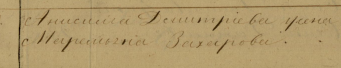 Анисима Дмитріева жена
Маремьяна Захарова.